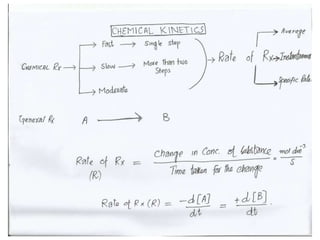 CHEMICAL KINETICS
CHEMICAL Rx → Fast → Single step
→ Slow → More than two Steps
→ Moderate
→ Rate of Rx → Average
→ Instantaneous
→ Specific Rate
General Rx A → B
Rate of Rx (R) = Change in Conc. of Substance / Time taken for the change = mol dm⁻³ / S
Rate of Rx (R) = -d[A] / dt = +d[B] / dt.